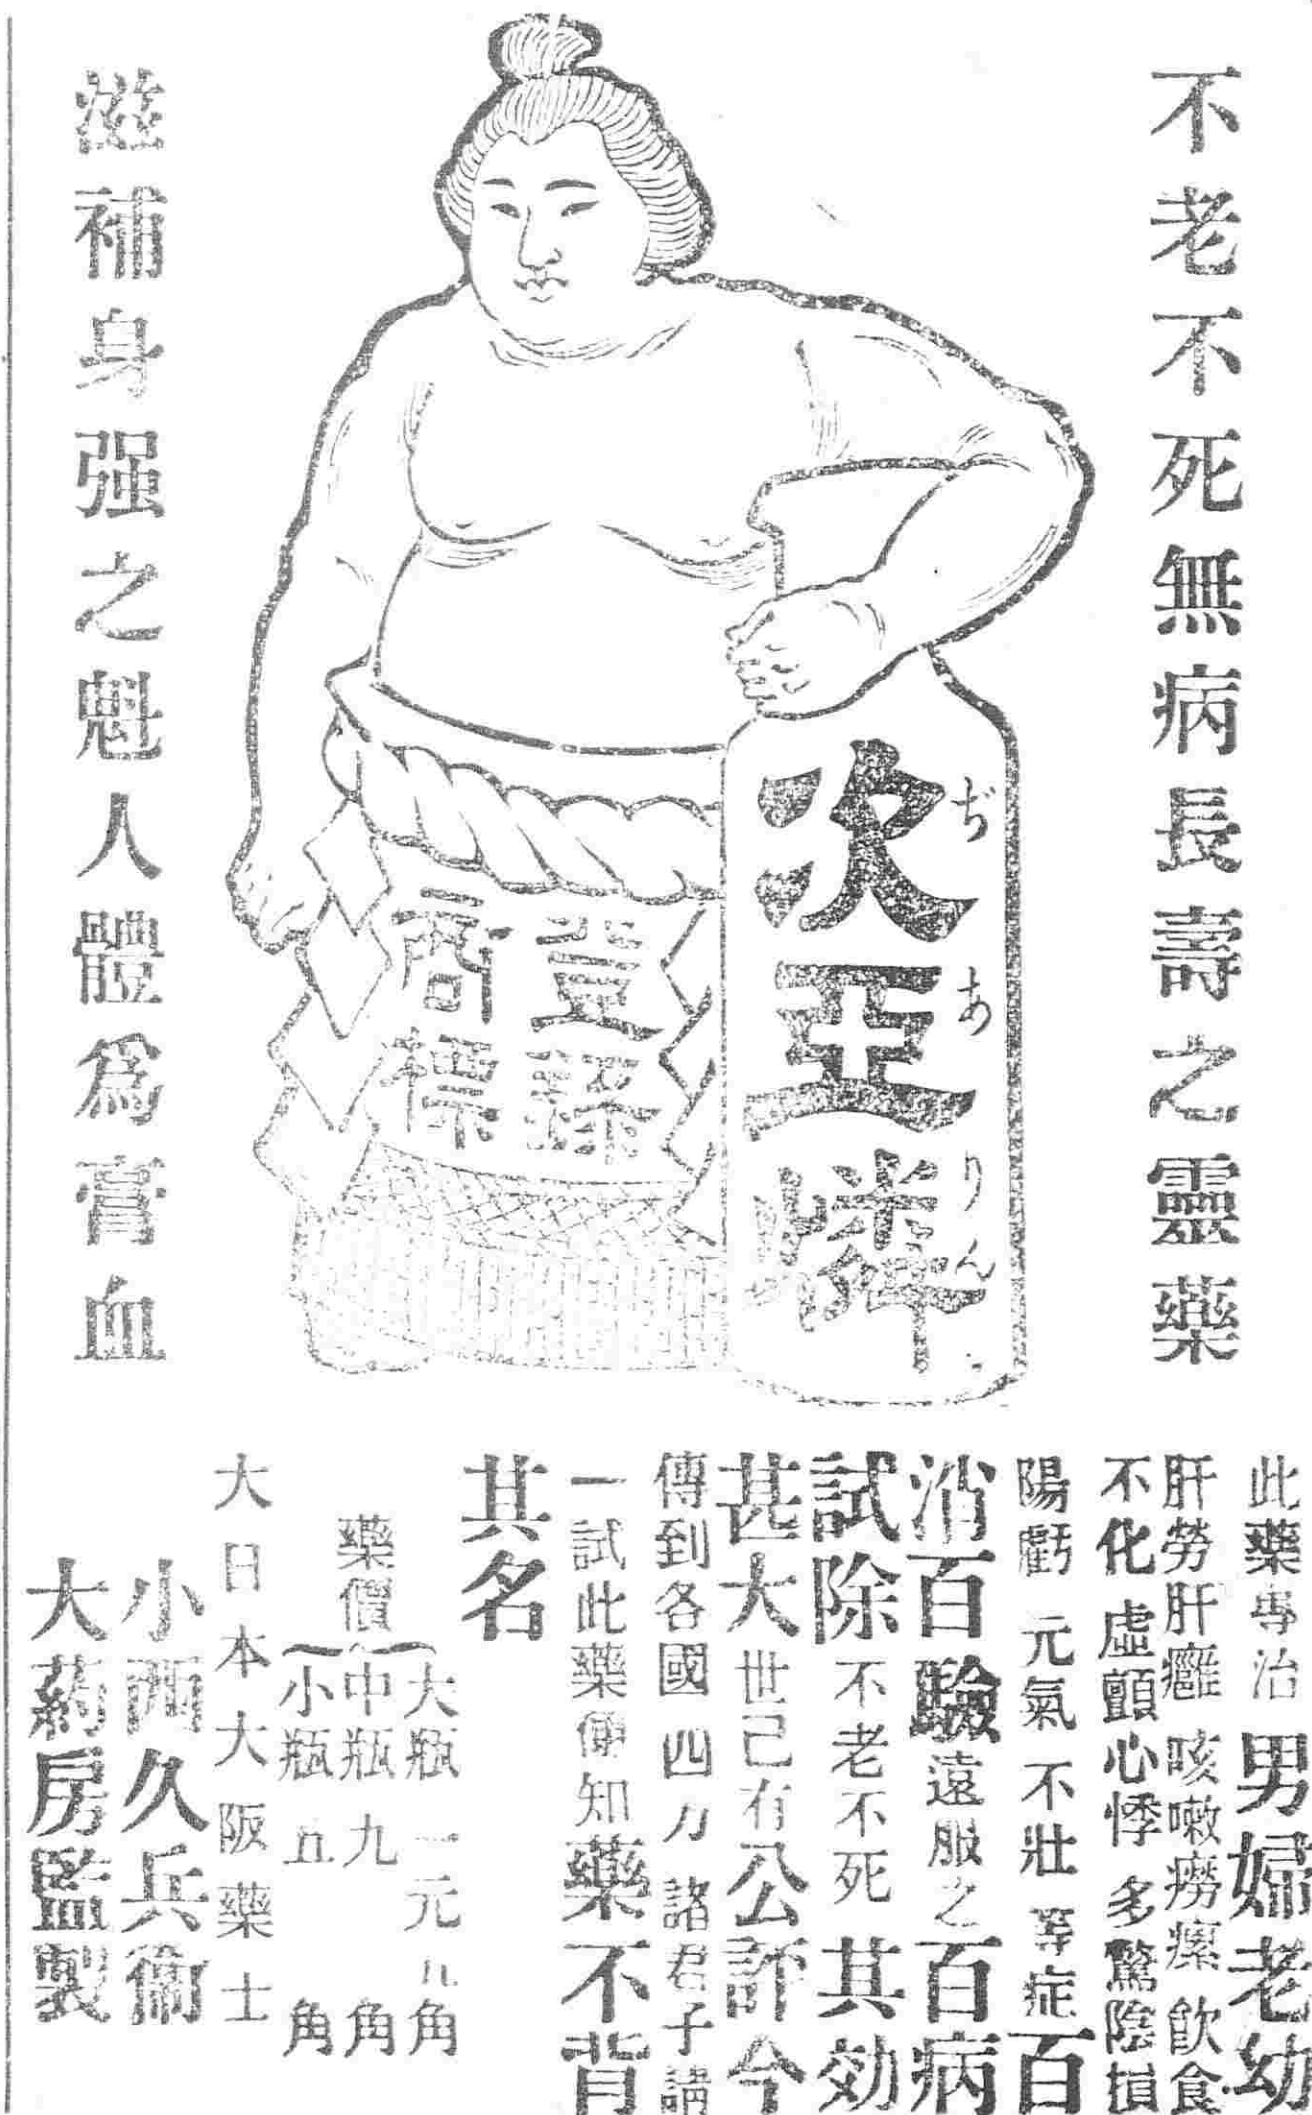 不老不死無病長壽之靈藥
次亞燐
ぢありん
登錄
商標
滋補身强之魁人體爲膏血
此藥專治男婦老幼
肝勞肝癰咳嗽癆瘰飮食
不化虛顫心悸多驚陰損
陽虧元氣不壯等症百
消百驗遠服之百病
試除不老不死其効
甚大世己有公評今
傳到各國四方諸君子請
一試此藥便知藥不背
其名
藥價
大瓶一元九角
中瓶九角
小瓶五角
大日本大阪藥士
小西久兵衞
大葯房監製